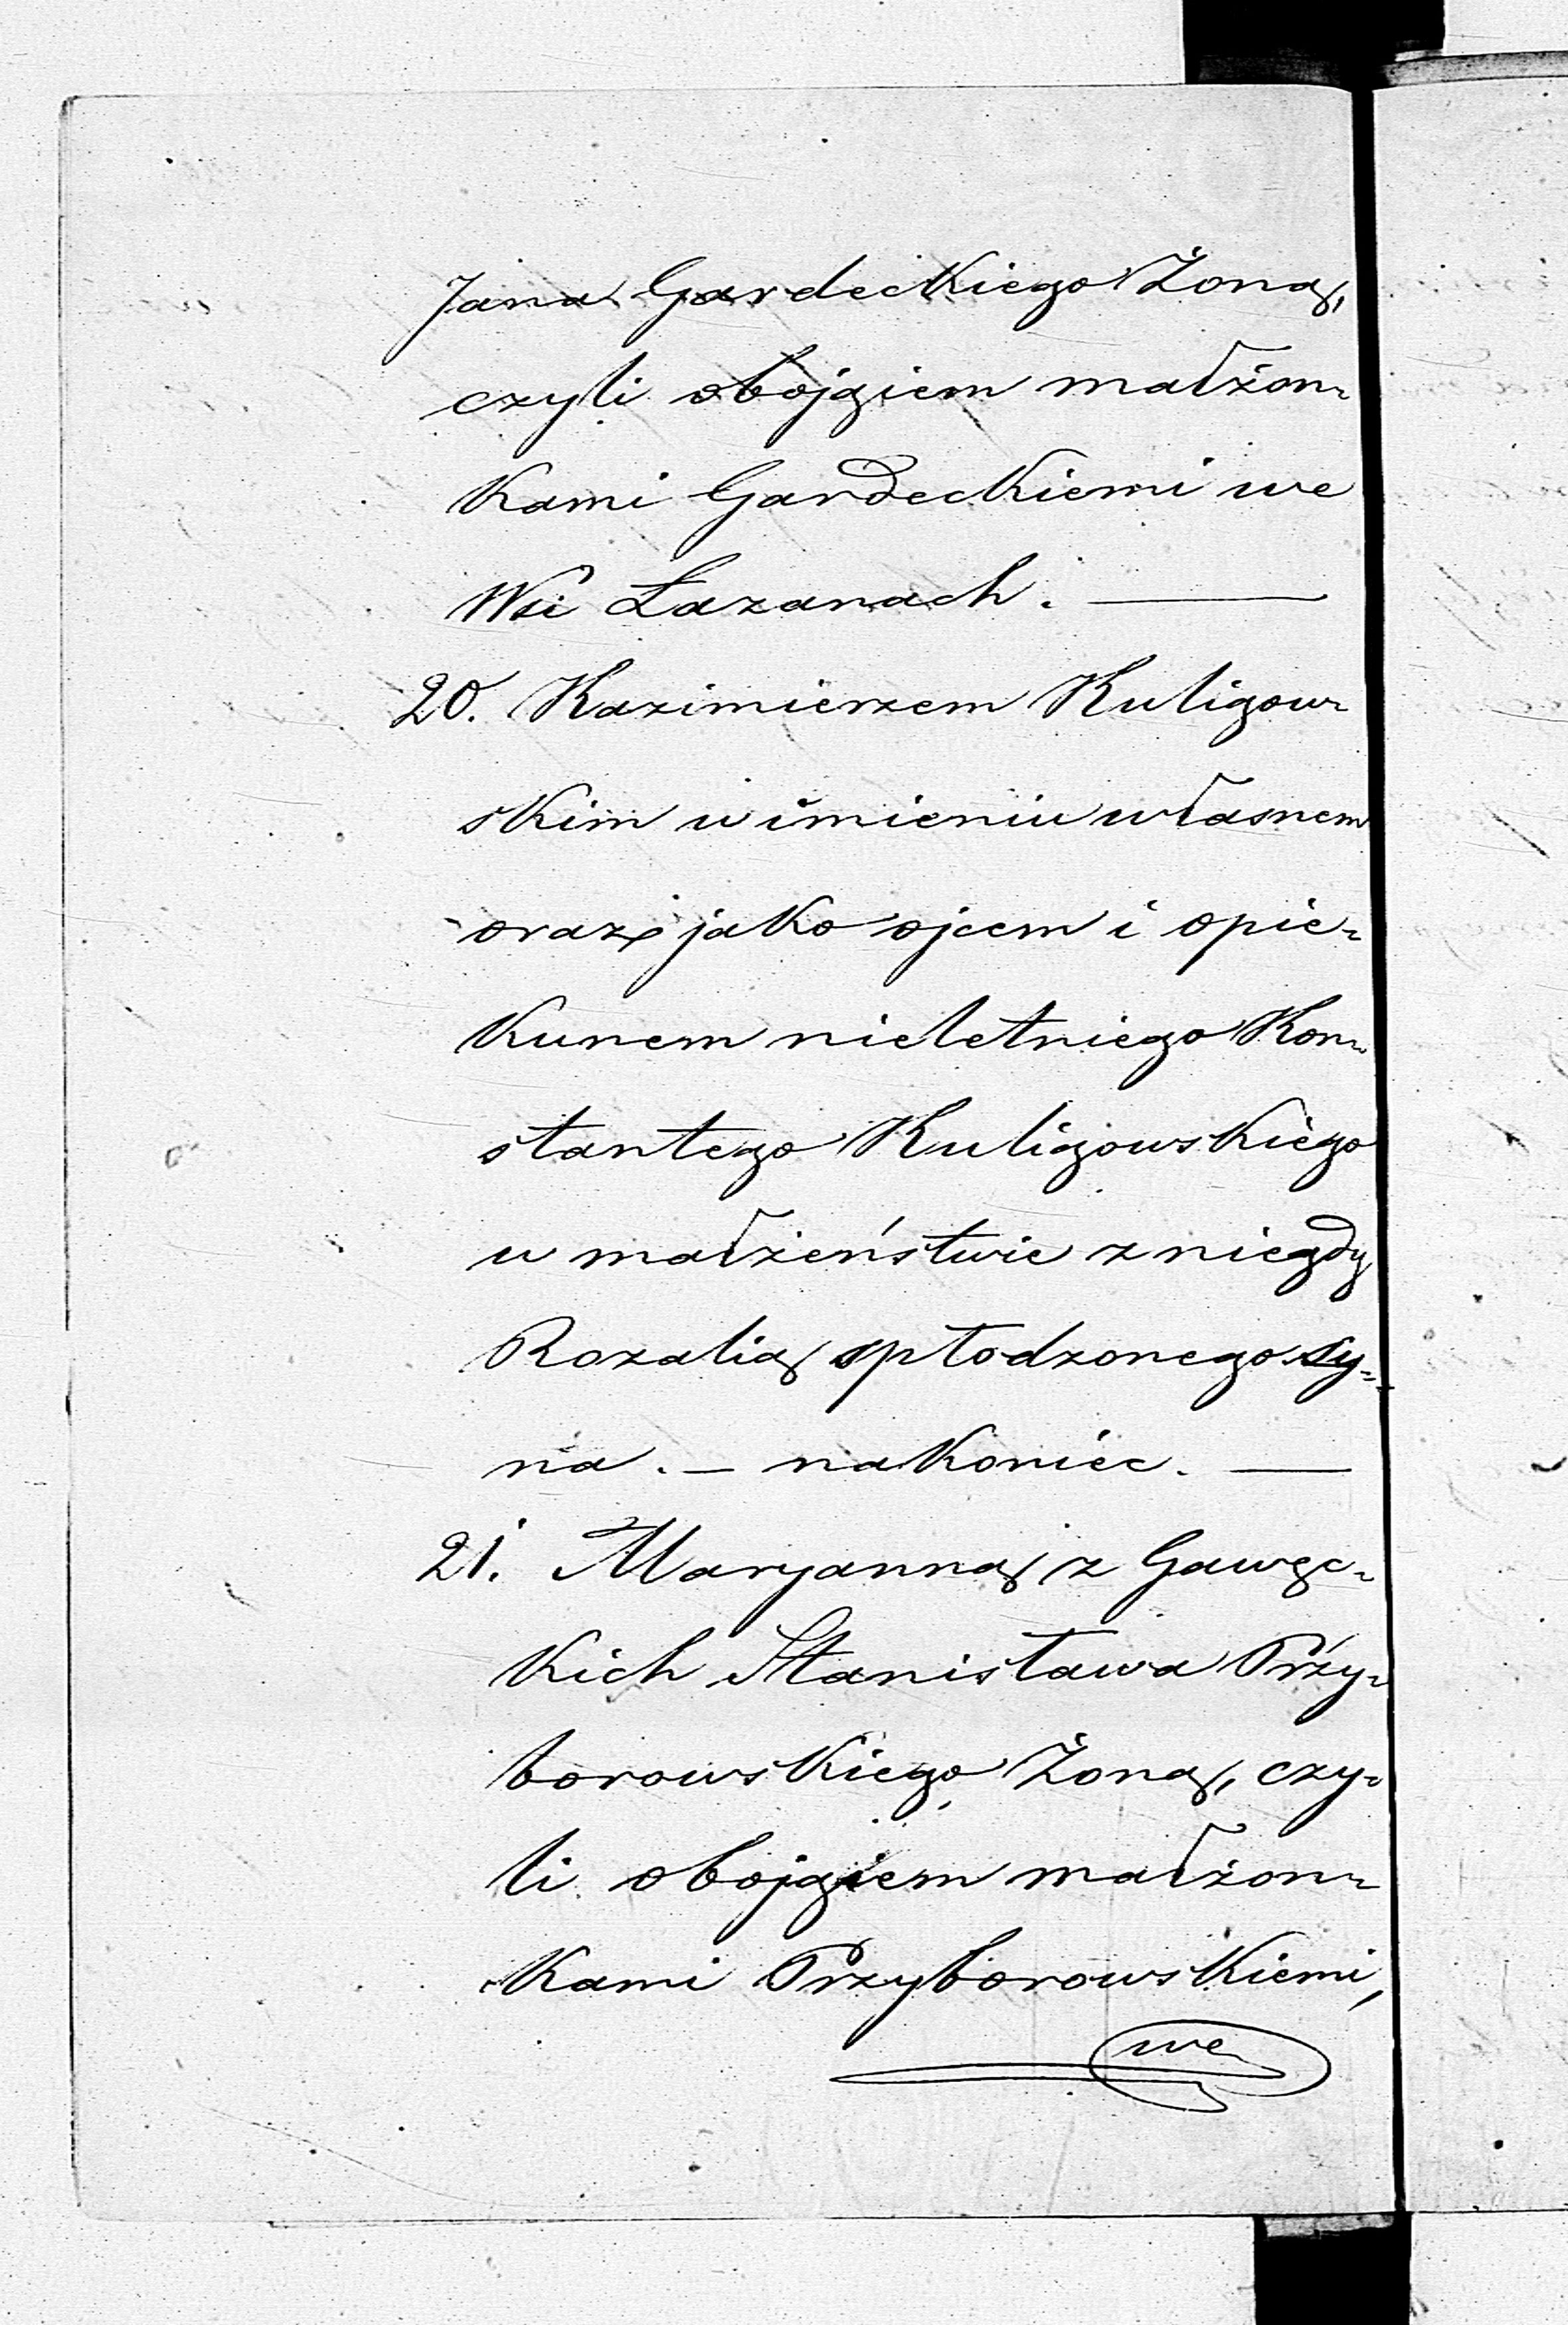 Jana Gardeckiego Żoną,
czyli obojgiem małżon-
kami Gardeckiemi we
Wsi Łazanach. —
20. Kazimierzem Kuligow-
skim w imieniu własnem
oraz jako ojcem i opie-
kunem nieletniego Kon-
stantego Kuligowskiego
w małżeństwie z niegdy
Rozalią spłodzonego sy-
na. — nakoniec. —
21. Maryanną z Gawęc-
kich Stanisława Przy-
borowskiego Żoną, czy-
li obojgiem małżon-
kami Przyborowskiemi,
we